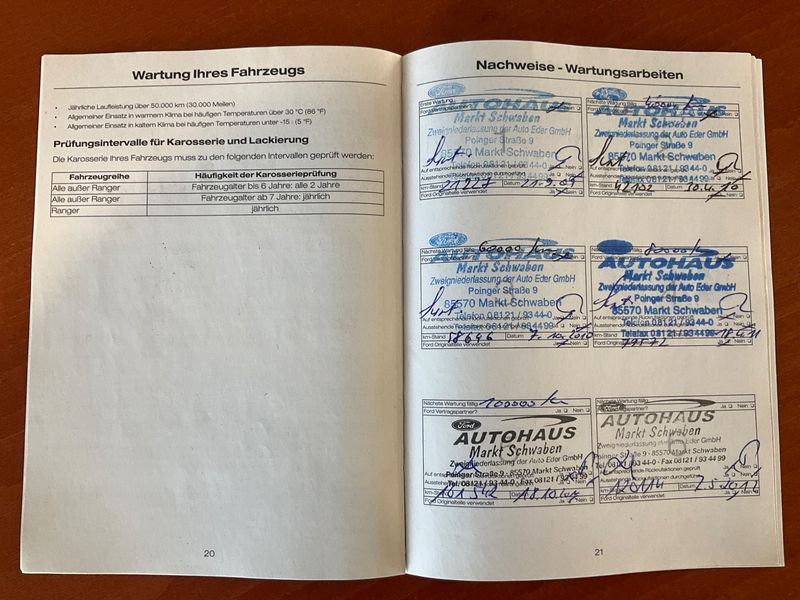 Wartung Ihres Fahrzeugs
• Jährliche Laufleistung über 50.000 km (30.000 Meilen)
• Allgemeiner Einsatz in warmem Klima bei häufigen Temperaturen über 30 °C (86 °F)
• Allgemeiner Einsatz in kaltem Klima bei häufigen Temperaturen unter -15 : (5 °F)
Prüfungsintervalle für Karosserie und Lackierung
Die Karosserie Ihres Fahrzeugs muss zu den folgenden Intervallen geprüft werden:
Fahrzeugreihe Häufigkeit der Karosserieprüfung
Alle außer Ranger Fahrzeugalter bis 6 Jahre: alle 2 Jahre
Alle außer Ranger Fahrzeugalter ab 7 Jahre: jährlich
Ranger jährlich
20
Nachweise - Wartungsarbeiten
Ford
Erste Wartung
AUTOHAUS
Markt Schwaben
Zweigniederlassung der Auto Eder GmbH
Poinger Straße 9
85570 Markt Schwaben
km-Stand 21227 Datum 21.9.09
Nächste Wartung fällig 40000 km
AUTOHAUS
Markt Schwaben
Zweigniederlassung der Auto Eder GmbH
Poinger Straße 9
85570 Markt Schwaben
Telefon 08121 / 9344-0
km-Stand 42102 Datum
Ford
Nächste Wartung fällig 60000 km
AUTOHAUS
Markt Schwaben
Zweigniederlassung der Auto Eder GmbH
Poinger Straße 9
85570 Markt Schwaben
Telefon 08121 / 9344-0
Telefax 08121 / 934499
km-Stand 58696 Datum
Ford Originalteile verwendet Ja Nein
AUTOHAUS
Markt Schwaben
Zweigniederlassung der Auto Eder GmbH
Poinger Straße 9
85570 Markt Schwaben
Telefon 08121 / 9344-0
Telefax 08121 / 934499
km-Stand 79572
Ford Originalteile verwendet Ja Nein
Nächste Wartung fällig 100000 km
Ford Vertragspartner? Ja Nein
Ford
AUTOHAUS
Markt Schwaben
Zweigniederlassung der Auto Eder GmbH
Poinger Straße 9 - 85570 Markt Schwaben
Tel. 08121 / 93 44-0 - Fax 08121 / 93 44 99
km-Stand 101542 Datum
Ford Originalteile verwendet Ja Nein
Nächste Wartung fällig Ja Nein
AUTOHAUS
Markt Schwaben
Zweigniederlassung der Auto Eder GmbH
Poinger Straße 9 - 85570 Markt Schwaben
Tel. 08121 / 93 44-0 - Fax 08121 / 93 44 99
km-Stand Datum
Ford Originalteile verwendet Ja Nein
21